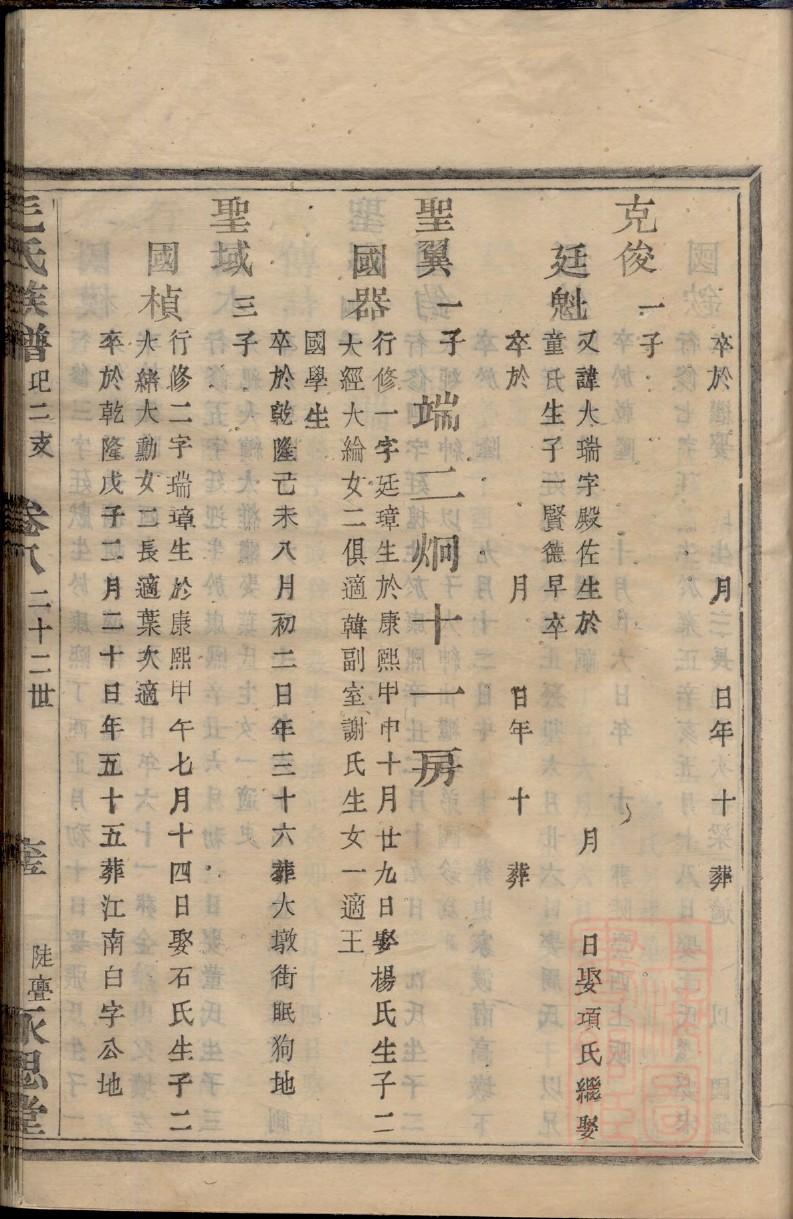 卒於　月　日年　十　葬
克俊一子
廷魁又諱大瑞字殿佐生於　月　日娶項氏繼娶
童氏生子一賢德早卒
卒於　月　日年　十　葬
聖翼一子　端二炯十一房
國器行修一字廷璋生於康熙甲申十月廿九日娶楊氏生子二
大經大綸女二俱適韓副室謝氏生女一適王
國學生
卒於乾隆己未八月初二日年三十六葬大墩街眠狗地
聖域三子
國楨行修二字瑞璋生於康熙甲午七月十四日娶石氏生子二
大緒大勳女二長適葉次適
卒於乾隆戊子二月二十日年五十五葬江南白字公地
氏族譜　圯二支　卷八　二十二世　陡亹　永思堂